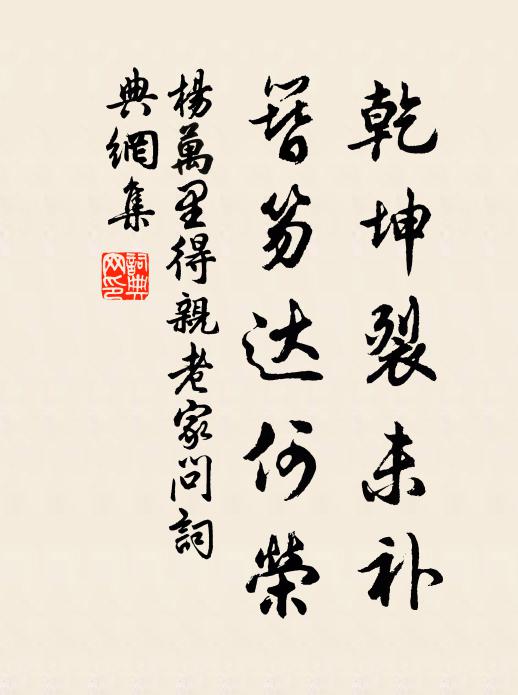 乾坤裂未补
簪笏达何荣
楊萬里得親老家問詞
典網集
詞典網印